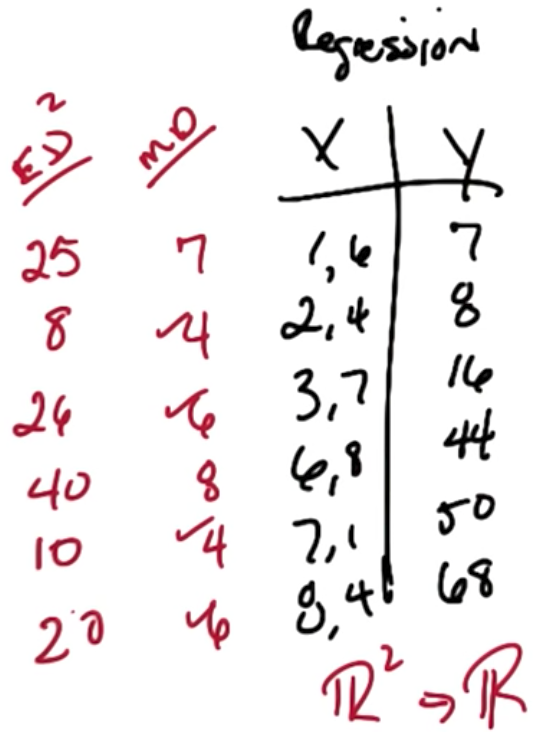 Regression
ED² MD X Y
25 7 1,6 7
8 ✓4 2,4 8
26 ✓6 3,7 16
40 8 6,8 44
10 ✓4 7,1 50
20 ✓6 8,4 68
ℝ² → ℝ